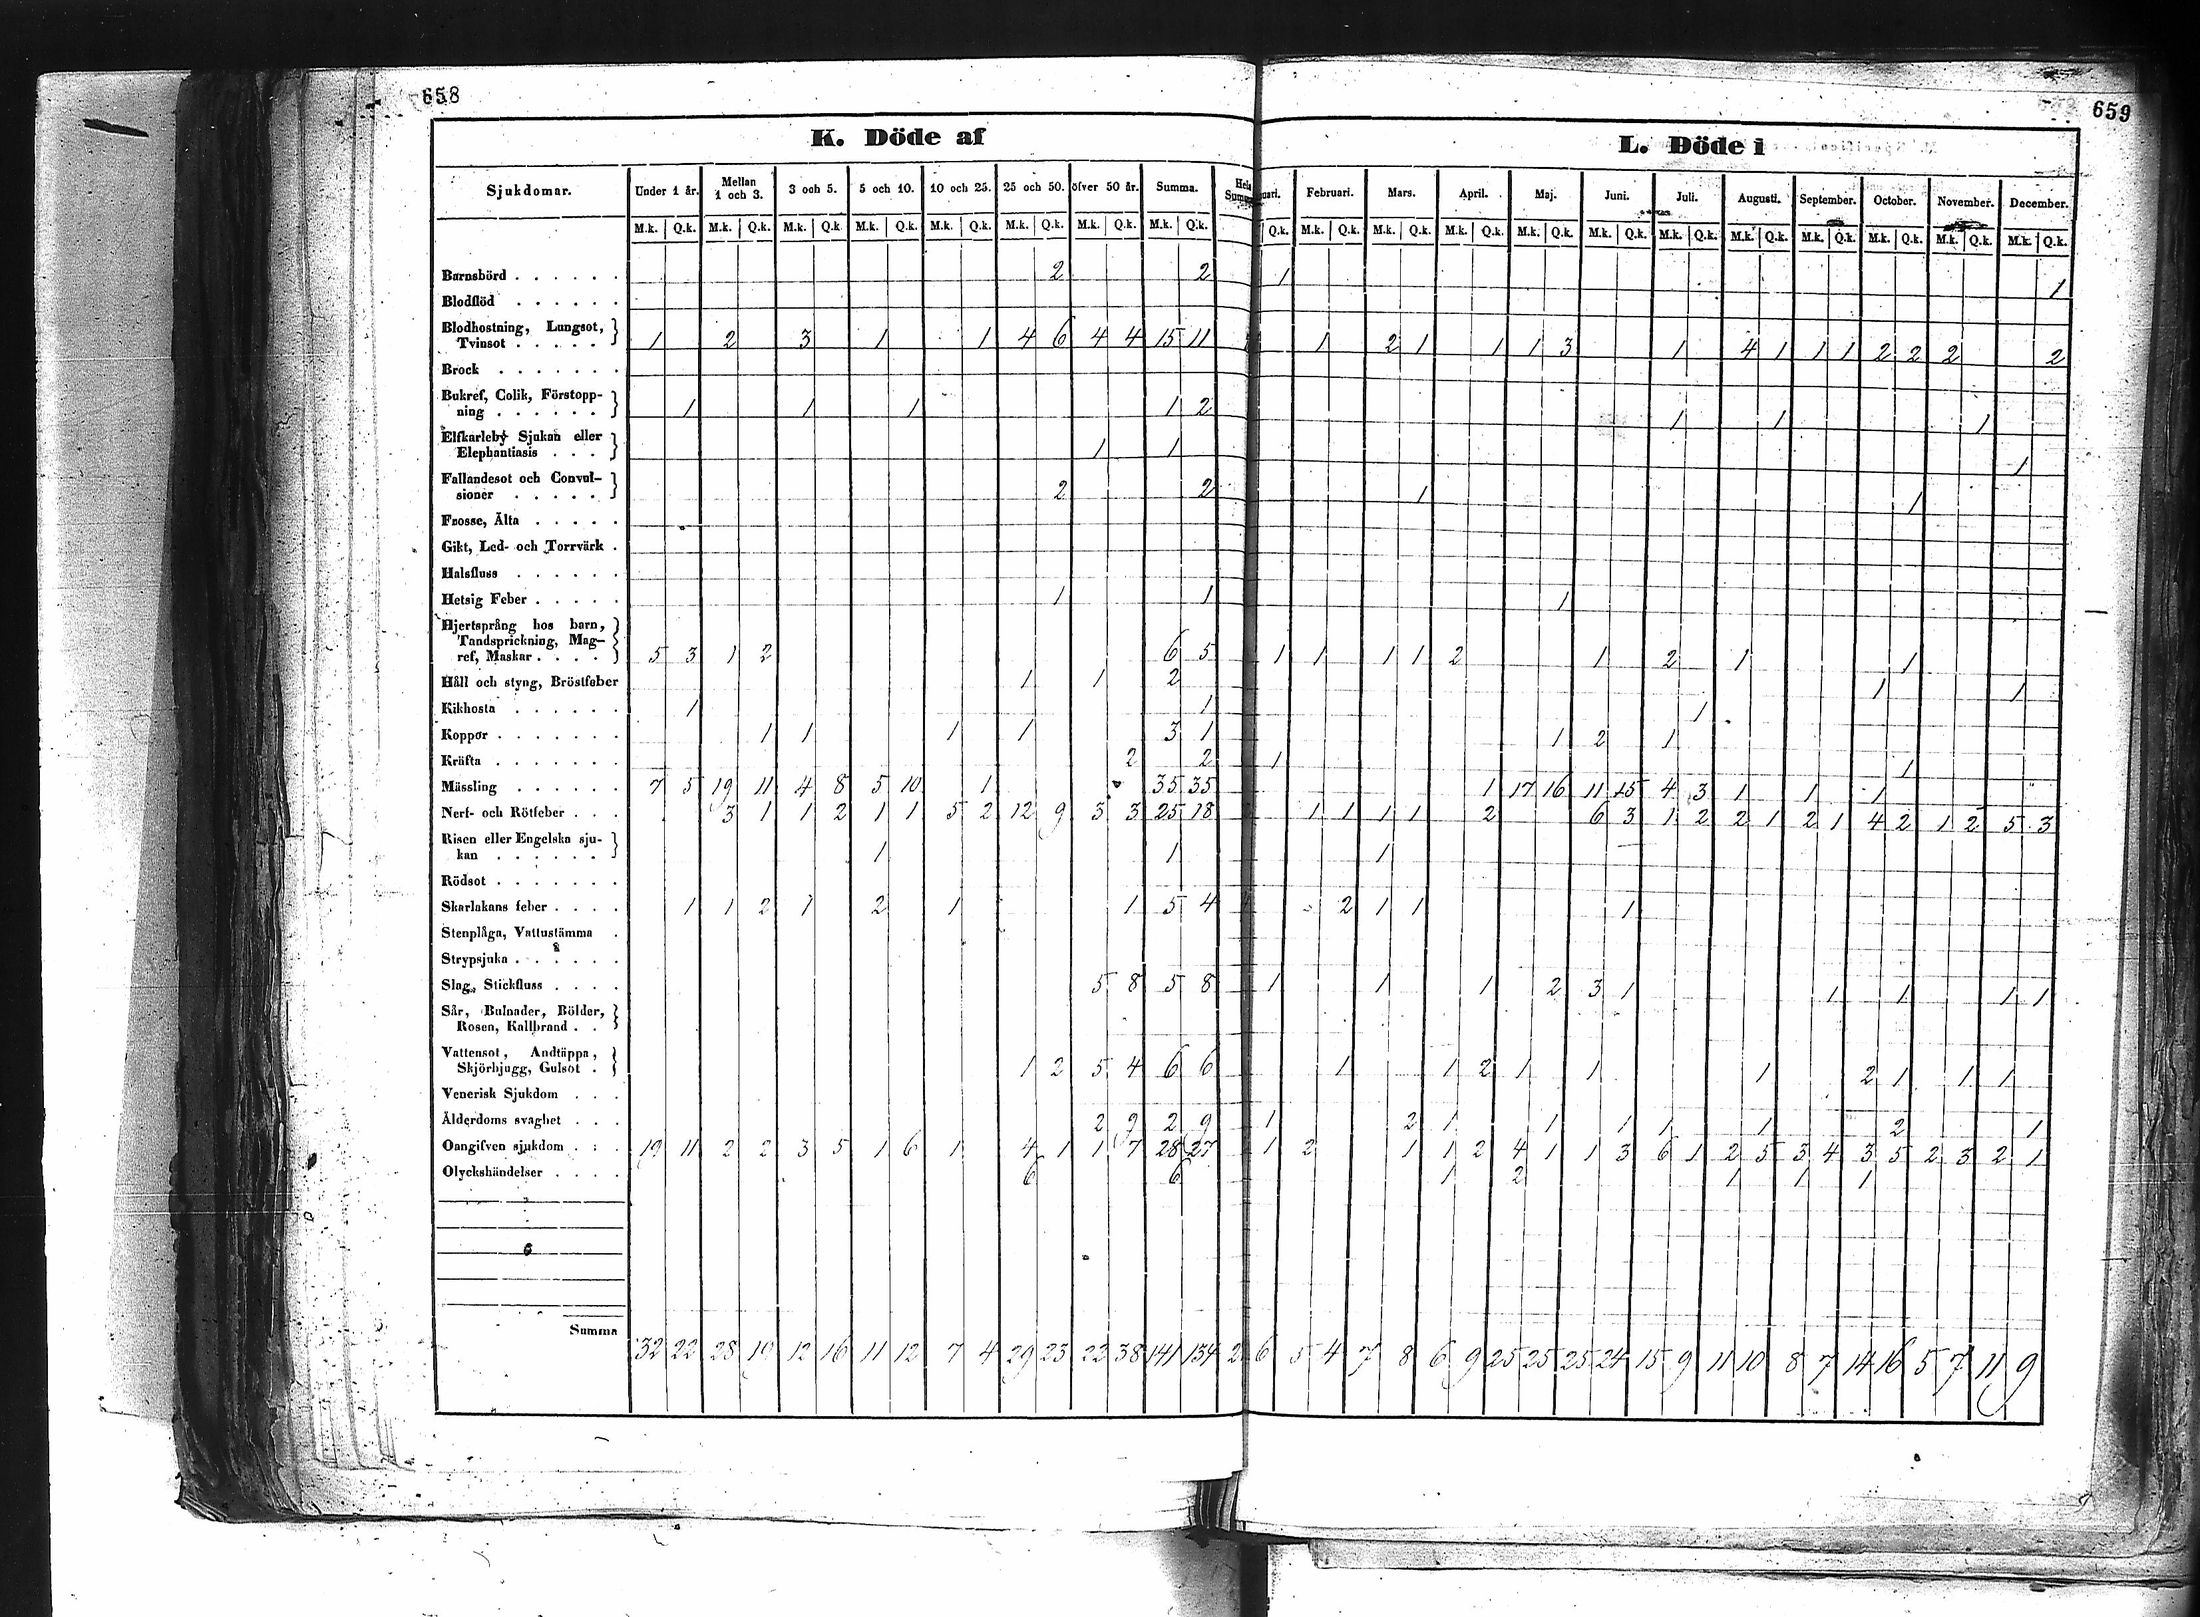 658
659
K. Döde af
L. Döde i
Sjukdomar. Under 1 år. Mellan 1 och 3. 3 och 5. 5 och 10. 10 och 25. 25 och 50. öfver 50 år. Summa. Hela Summa
uari. Februari. Mars. April. Maj. Juni. Juli. Augusti. September. October. November. December.
M.k. Q.k. M.k. Q.k. M.k. Q.k M.k. Q.k. M.k. Q.k. M.k. Q.k. M.k. Q.k. M.k. Q.k.
Q.k. M.k. Q.k. M.k. Q.k. M.k. Q.k. M.k. Q.k. M.k. Q.k. M.k. Q.k. M.k. Q.k. M.k. Q.k. M.k. Q.k. M.k. Q.k. M.k. Q.k.
Barnsbörd 2 2 1 1
Blodflöd
Blodhostning, Lungsot,
Tvinsot 1 2 3 1 1 4 6 4 4 15 11 1 2 1 1 1 3 1 4 1 1 1 2 2 2 2
Brock
Bukref, Colik, Förstopp-
ning 1 1 1 1 2 1 1 1
Elfkarleby Sjukan eller
Elephantiasis 1 1 1
Fallandesot och Convul-
sioner 2 2 1 1
Frosse, Älta
Gikt, Led- och Torrvärk
Halsfluss
Hetsig Feber 1 1 1
Hjertsprång hos barn,
Tandsprickning, Mag-
ref, Maskar 5 3 1 2 6 5 1 1 1 1 2 1 2 1 1
Håll och styng, Bröstfeber 1 1 2 1 1
Kikhosta 1 1 1
Koppor 1 1 1 1 3 1 1 2 1
Kräfta 2 2 1 1
Mässling 7 5 19 11 4 8 5 10 1 35 35 1 17 16 11 15 4 3 1 1 1
Nerf- och Rötfeber 3 1 1 2 1 1 5 2 12 9 3 3 25 18 1 1 1 1 2 6 3 1 2 2 1 2 1 4 2 1 2 5 3
Risen eller Engelska sju-
kan 1 1 1
Rödsot
Skarlakans feber 1 1 2 1 2 1 1 5 4 2 1 1 1
Stenplåga, Vattustämma
Strypsjuka
Slag, Stickfluss 5 8 5 8 1 1 1 2 3 1 1 1 1 1
Sår, Bulnader, Bölder,
Rosen, Kallbrand
Vattensot, Andtäppa,
Skjörbjugg, Gulsot 1 2 5 4 6 6 1 1 2 1 1 1 2 1 1 1
Venerisk Sjukdom
Ålderdoms svaghet 2 9 2 9 1 2 1 1 1 1 1 2 1
Oangifven sjukdom 19 11 2 2 3 5 1 6 1 4 1 1 7 28 27 1 2 1 1 2 4 1 1 3 6 1 2 5 3 4 3 5 2 3 2 1
Olyckshändelser 6 6 1 2 1 1 1
Summa 32 22 28 19 12 16 11 12 7 4 29 23 22 38 141 134 2 6 5 4 7 8 6 9 25 25 25 24 15 9 11 10 8 7 14 16 5 7 11 9